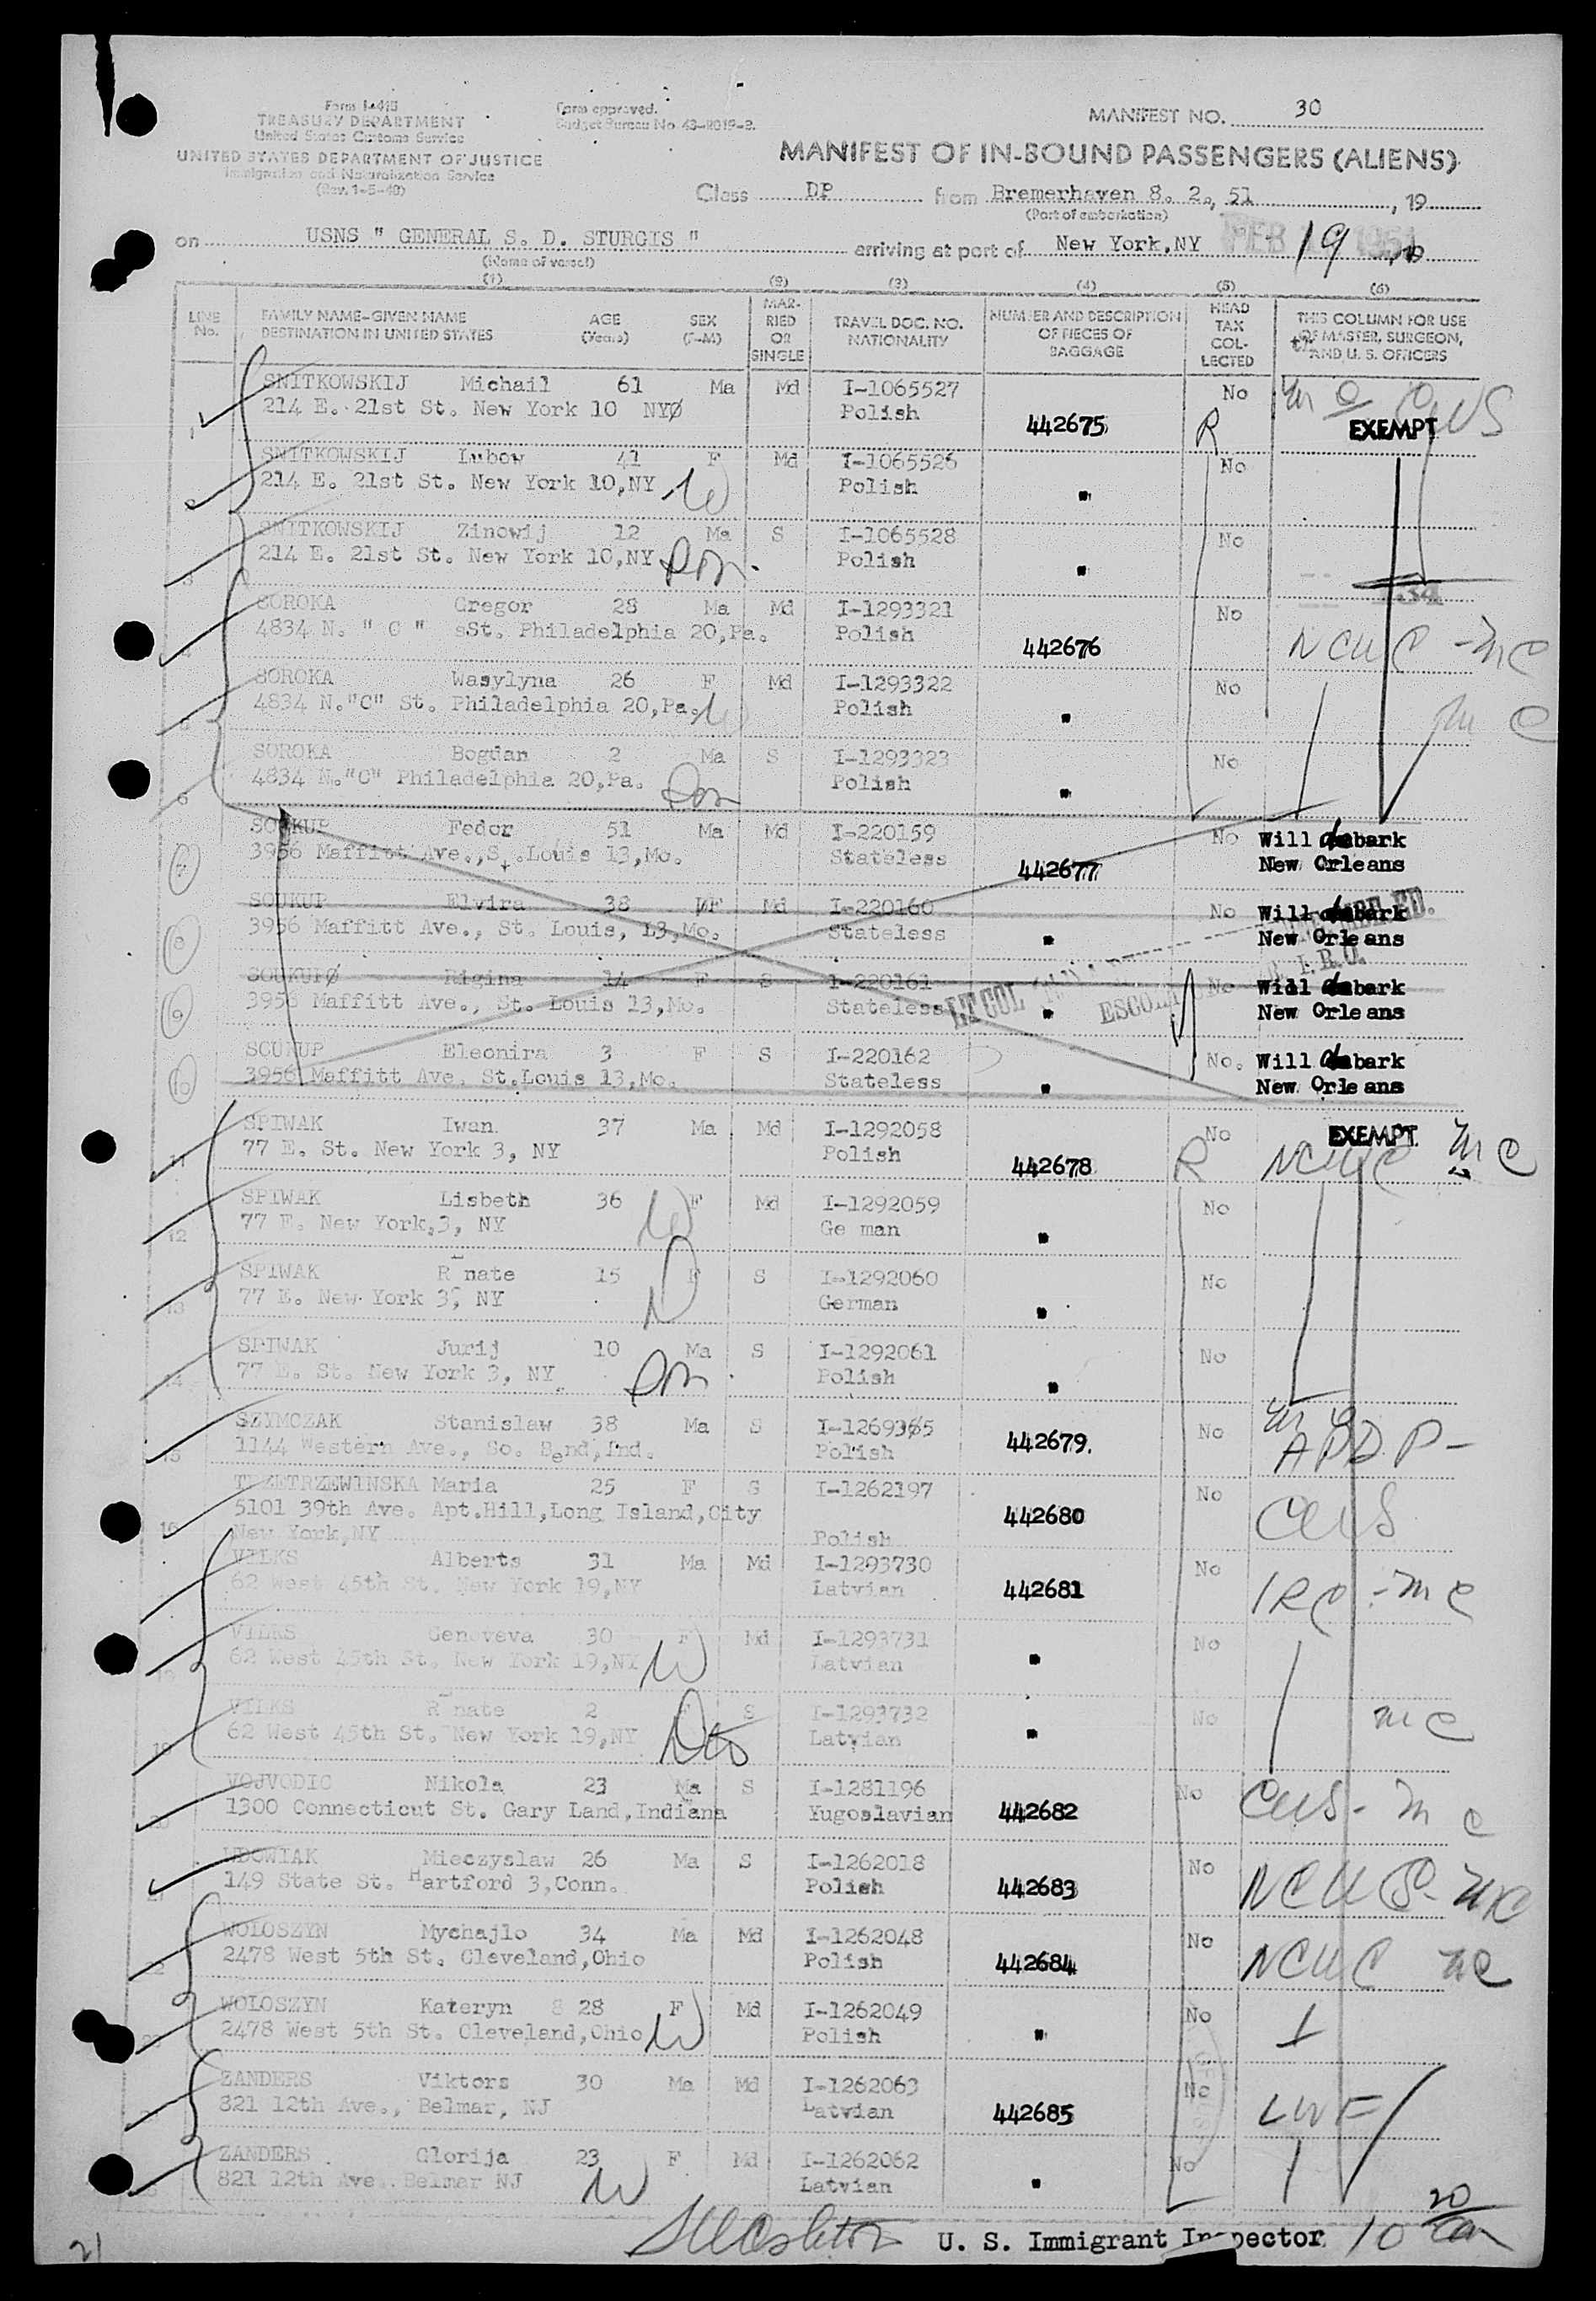 Form I-415
TREASURY DEPARTMENT
United States Customs Service
UNITED STATES DEPARTMENT OF JUSTICE
Immigration and Naturalization Service
(Rev. 1-5-49)
Form approved.
Budget Bureau No. 43-R019-2.
MANIFEST NO. 30
MANIFEST OF IN-BOUND PASSENGERS (ALIENS)
Class DP from Bremerhaven 8. 2., 51, 19
(Port of embarkation)
on USNS " GENERAL S. D. STURGIS " arriving at port of New York,NY FEB 19 1951
(Name of vessel)
(1) (2) (3) (4) (5) (6)
LINE No. FAMILY NAME-GIVEN NAME DESTINATION IN UNITED STATES AGE (Years) SEX (F-M) MARRIED OR SINGLE TRAVEL DOC. NO. NATIONALITY NUMBER AND DESCRIPTION OF PIECES OF BAGGAGE HEAD TAX COLLECTED THIS COLUMN FOR USE OF MASTER, SURGEON, AND U. S. OFFICERS
1 SNITKOWSKIJ Michail 61 Ma Md I-1065527 No
214 E. 21st St. New York 10 NYØ Polish 442675 R EXEMPT
SNITKOWSKIJ Lubow 41 F Md I-1065526 No
214 E. 21st St. New York 10,NY W Polish "
3 SNITKOWSKIJ Zinowij 12 Ma S I-1065528 No
214 E. 21st St. New York 10,NY Son. Polish "
4 SOROKA Gregor 28 Ma Md I-1293321 No
4834 N. " C " sSt. Philadelphia 20,Pa. Polish 442676 NCWC - mc
5 SOROKA Wasylyna 26 F Md I-1293322 No
4834 N."C" St. Philadelphia 20,Pa. W Polish " mc
6 SOROKA Bogdan 2 Ma S I-1293323 No
4834 N."C" Philadelphia 20,Pa. Son Polish "
7 SOUKUP Fedor 51 Ma Md I-220159 No Will debark
3956 Maffitt Ave.,S .Louis 13,Mo. Stateless 442677 New Orleans
8 SOUKUP Elvira 38 F Md I-220160 No Will debark
3956 Maffitt Ave., St. Louis, 13,Mo. Stateless " New Orleans
9 SOUKUPØ Rigina 14 F S I-220161 No Will debark
3956 Maffitt Ave., St. Louis 13,Mo. Stateless " New Orleans
LT COL ESCORT I.R.O.
10 SOUKUP Eleonira 3 F S I-220162 No. Will debark
3956 Maffitt Ave. St.Louis 13,Mo. Stateless " New Orleans
11 SPIWAK Iwan 37 Ma Md I-1292058 No EXEMPT mc
77 E. St. New York 3, NY Polish 442678 R NCWC
12 SPIWAK Lisbeth 36 W F Md I-1292059 No
77 E. New York,3, NY Ge man "
13 SPIWAK R nate 15 D F S I-1292060 No
77 E. New York 3, NY German "
14 SPIWAK Jurij 10 Ma S I-1292061 No
77 E. St. New York 3, NY Son Polish "
15 SZYMCZAK Stanislaw 38 Ma S I-1269365 No
1144 Western Ave., So. Bend,Ind. Polish 442679.
16 TRZETRZEWINSKA Maria 25 F S I-1262197 No
5101 39th Ave. Apt.Hill,Long Island,City 442680 CWS
New York,NY Polish
VILKS Alberts 31 Ma Md I-1293730 No
62 West 45th St. New York 19,NY Latvian 442681 IRC - mc
VILKS Genoveva 30 F Md I-1293731 No
62 West 45th St. New York 19,NY W Latvian "
19 VILKS R nate 2 F S I-1293732 No mc
62 West 45th St. New York 19,NY Latvian "
VOJVODIC Nikola 23 Ma S I-1281196 No
1300 Connecticut St. Gary Land,Indiana Yugoslavian 442682 CWS - mc
UDOWIAK Mieczyslaw 26 Ma S I-1262018 No
149 State St. Hartford 3,Conn. Polish 442683
WOLOSZYN Mychajlo 34 Ma Md I-1262048 No
2478 West 5th St. Cleveland,Ohio Polish 442684 NCWC mc
WOLOSZYN Kateryn 28 F Md I-1262049 No
2478 West 5th St. Cleveland,Ohio W Polish "
ZANDERS Viktors 30 Ma Md I-1262063 No
821 12th Ave., Belmar, NJ Latvian 442685 LWF
ZANDERS Glorija 23 F Md I-1262062 No
821 12th Ave. Belmar NJ W Latvian "
U. S. Immigrant Inspector 10 20
21